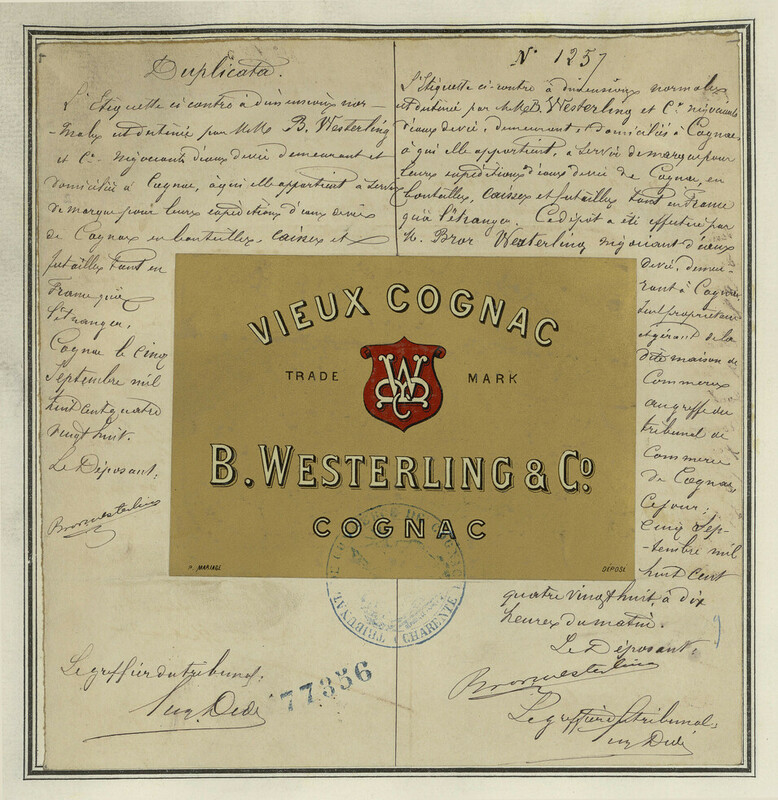 Duplicata.
L'Etiquette ci contre à dimensions nor-
-males est destinée par MM. B. Westerling
et Cie. négociants d'eaux de vie demeurant et
domiciliés à Cognac, à qui elle appartient à servir
de marque pour leurs expéditions d'eaux de vie
de Cognac en bouteilles, caisses et
futailles tant en
France qu'à
l'étranger.
Cognac le cinq
Septembre mil
huit cent quatre
vingt huit.
Le Déposant:
Bror Westerling
Le greffier du tribunal:
N° 1257
L'Etiquette ci-contre à dimensions normales
est destinée par MM. B. Westerling et Cie négociants
d'eaux de vie, demeurant et domiciliés à Cognac,
à qui elle appartient, à servir de marque pour
leurs expéditions d'eaux de vie de Cognac, en
bouteilles, caisses et futailles tant en France
qu'à l'étranger. Ce dépôt a été effectué par
M. Bror Westerling négociant d'eaux
de vie, demeu-
rant à Cognac
seul propriétaire
et gérant de la
dite maison de
Commerce
au greffe du
tribunal de
Commerce
de Cognac,
Ce jour;
cinq Sep-
-tembre mil
huit cent
quatre vingt huit, à dix
heures du matin.
Le Déposant:
Bror Westerling
Le greffier du tribunal:
VIEUX COGNAC
TRADE MARK
B. WESTERLING & Co
COGNAC
P. MARIAGE
DÉPOSÉ
TRIBUNAL DE COMMERCE DE COGNAC
(CHARENTE)
77356